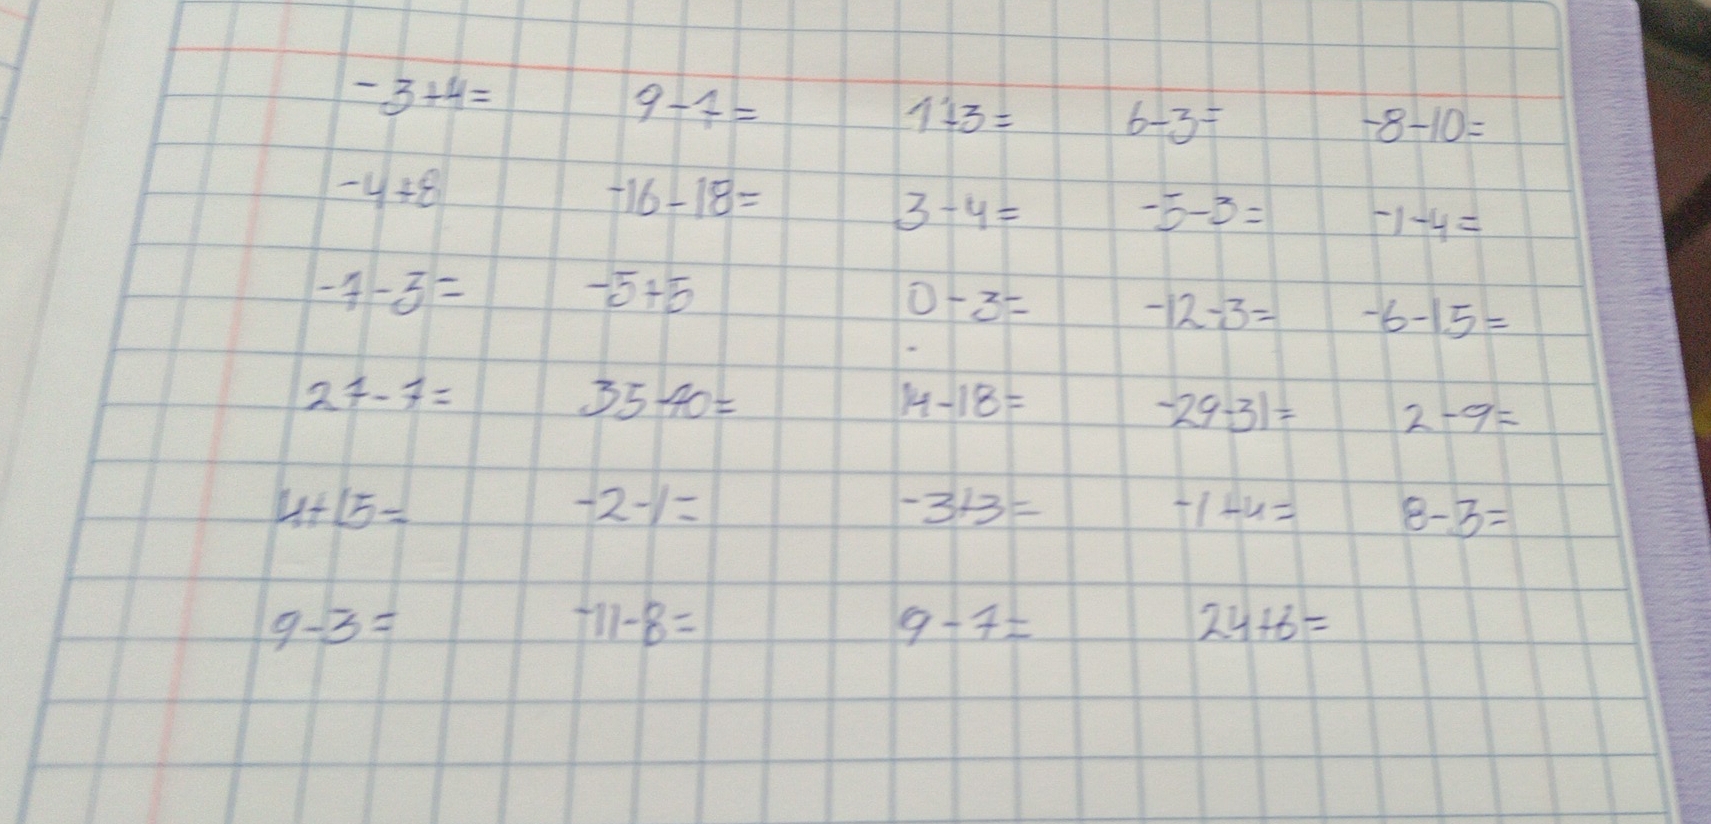 -3+4= 9-7= 1+3= 6-3= -8-10=
-4+8 -16-18= 3-4= -5-3= -1-4=
-7-3= -5+5 0-3= -12-3= -6-15=
27-7= 35-40= 14-18= -29-31= 2-9=
4+15= -2-1= -3+3= -1+4= 8-3=
9-3= -11-8= 9-7= 24+6=